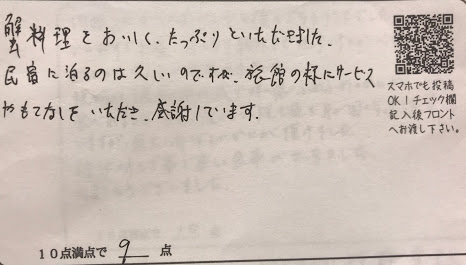 蟹料理をおいしく、たっぷりといただきました。
民宿に泊るのは久しいのですが、旅館の様にサービス
やもてなしをいただき、感謝しています。
スマホでも投稿
OK!チェック欄
記入後フロント
へお渡し下さい。
10点満点で 9 点